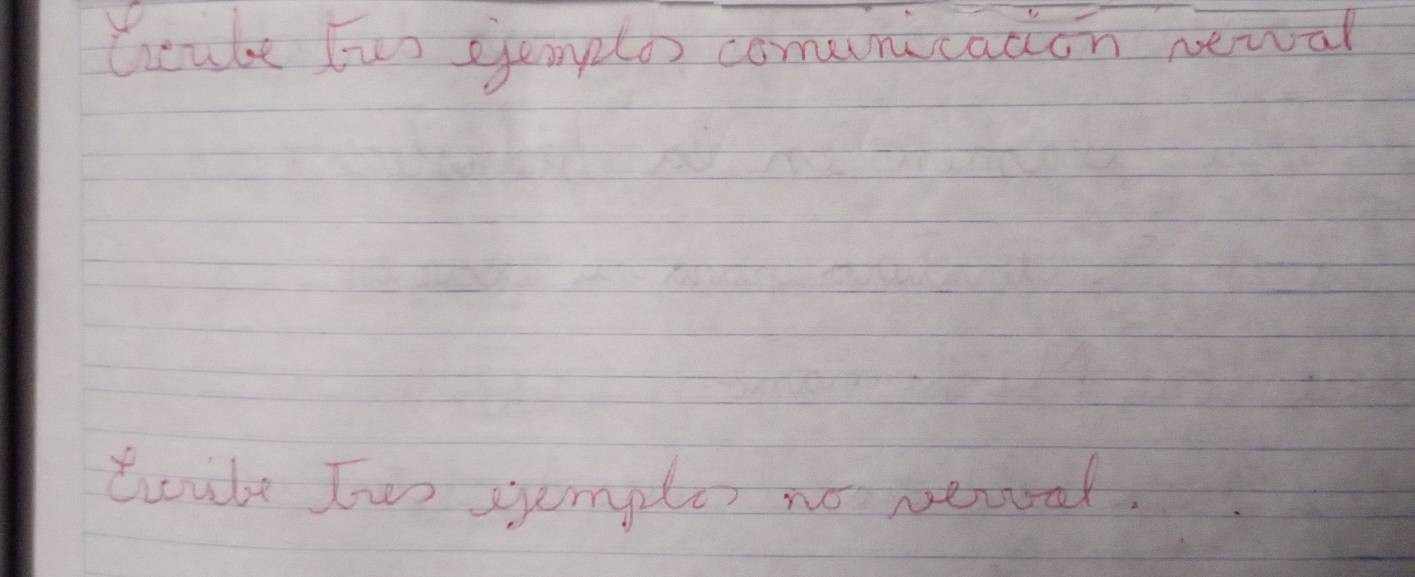 Escribe tres ejemplos comunicación verval
Escribe tres ejemplos no verval.